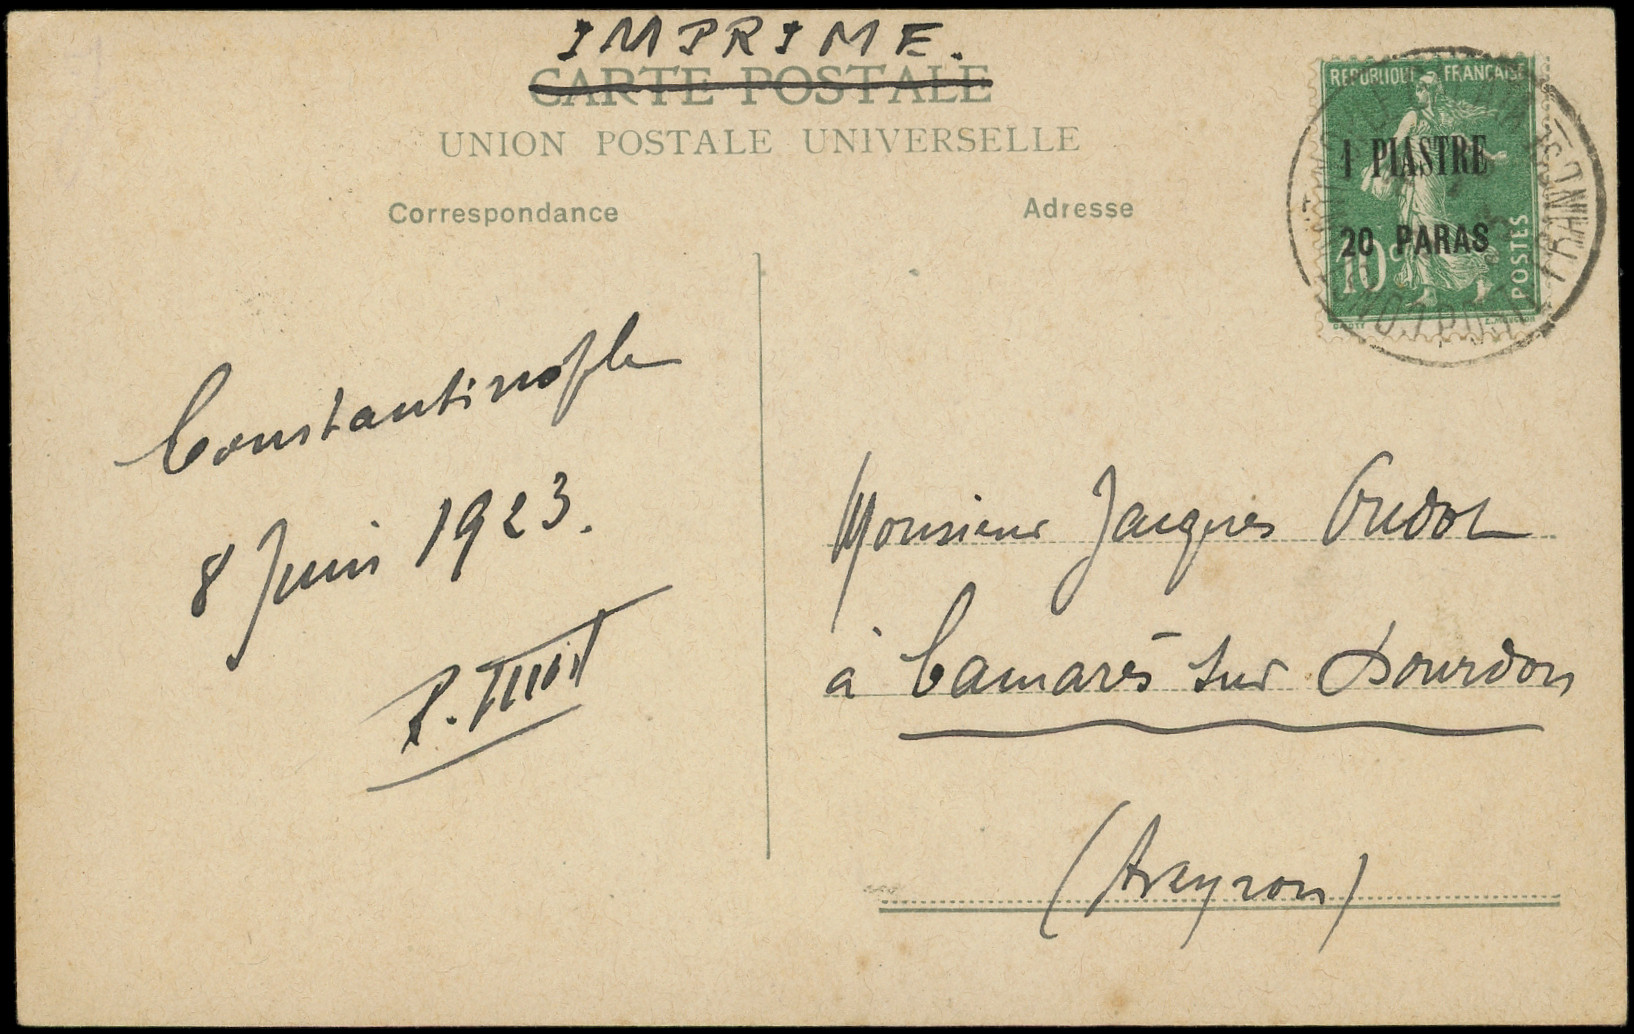 IMPRIME.
CARTE POSTALE
UNION POSTALE UNIVERSELLE
Correspondance
Adresse
REPUBLIQUE FRANÇAISE
1 PIASTRE
20 PARAS
10c
POSTES
Constantinople
8 Juin 1923.
Monsieur Jacques Oudot
à Camarès sur Dourdon
(Aveyron)